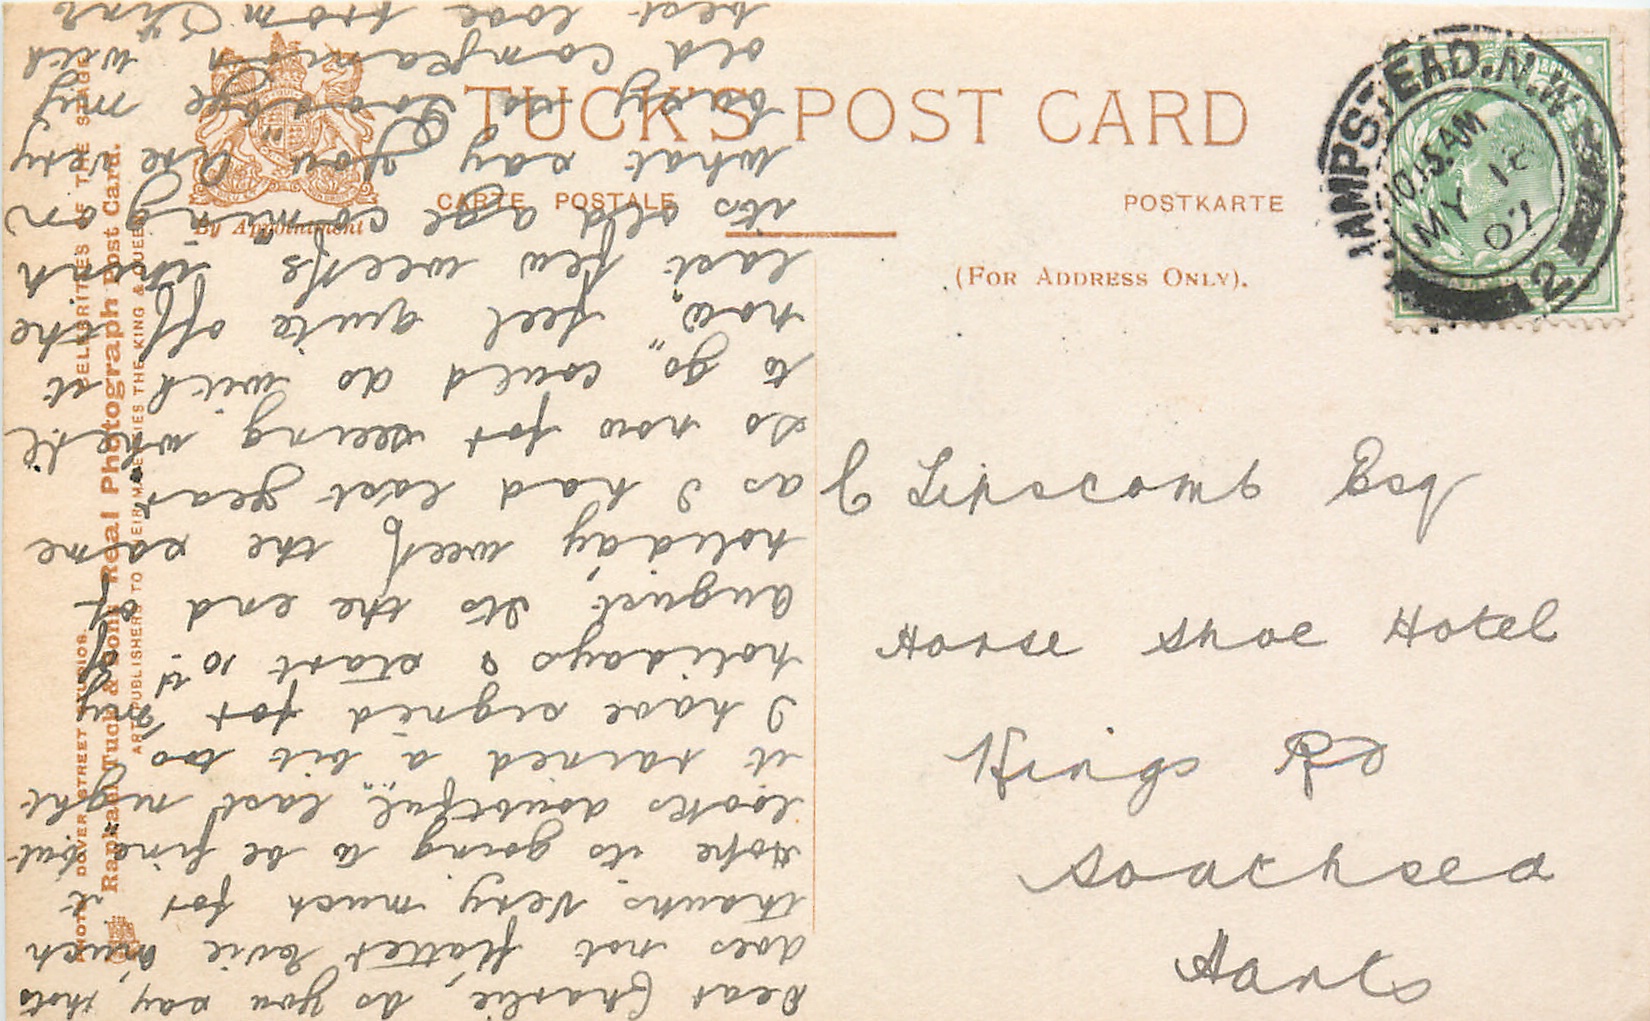 TUCK'S POST CARD
CARTE POSTALE
POSTKARTE
By Appointment
(FOR ADDRESS ONLY).
HAMPSTEAD. N.W
10.15 AM
MY 12
07
2
J Lipscomb Esq
Horse Shoe Hotel
Kings Rd
Southsea
Hants
Dear Charlie, as you say, photo
does not flatter Evie much
thanks very much for it
Hope its going to be fine but
looks doubtful, last night
it rained a bit too
I have signed for my
holidays & start 10th of
August, its the end of
holiday week the same
as I had last year
so now for seeing while
to go, could do with it
now, feel quite off the
last few weeks think
its old age coming on
what say you are very
badly so Goodbye my
old companion with
best love from Chas
CELEBRITIES OF THE STAGE
PHOTO DOVER STREET STUDIOS.
Raphael Tuck & Sons' Real Photograph Post Card.
ART PUBLISHERS TO THEIR MAJESTIES THE KING & QUEEN